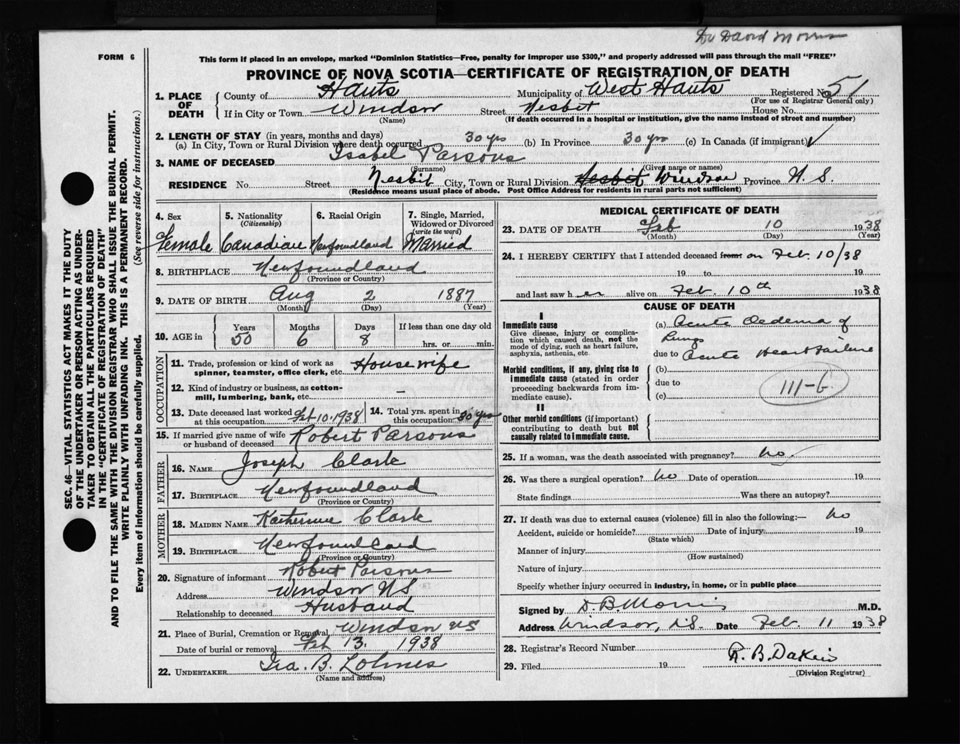 Dr David Morris
FORM 6
This form if placed in an envelope, marked "Dominion Statistics—Free, penalty for improper use $300," and properly addressed will pass through the mail "FREE"
PROVINCE OF NOVA SCOTIA—CERTIFICATE OF REGISTRATION OF DEATH
1. PLACE OF DEATH
County of Hants Municipality of West Hants Registered No. 51
(For use of Registrar General only)
If in City or Town Windsor Street Nesbit House No.
(Name) (If death occurred in a hospital or institution, give the name instead of street and number)
2. LENGTH OF STAY (in years, months and days)
(a) In City, Town or Rural Division where death occurred 30 yrs (b) In Province 30 yrs (c) In Canada (if immigrant) √
3. NAME OF DECEASED Isabel Parsons
(Surname) (Given name or names)
RESIDENCE No. Street Nesbit City, Town or Rural Division Nesbit Windsor Province N.S.
(Residence means usual place of abode. Post Office Address for residents in rural parts not sufficient)
4. Sex 5. Nationality (Citizenship) 6. Racial Origin 7. Single, Married, Widowed or Divorced (write the word)
Female Canadian Newfoundland Married
8. BIRTHPLACE Newfoundland
(Province or Country)
9. DATE OF BIRTH Aug 2 1887
(Month) (Day) (Year)
10. AGE in Years Months Days If less than one day old
50 6 8 hrs. or min.
OCCUPATION
11. Trade, profession or kind of work as spinner, teamster, office clerk, etc. Housewife
12. Kind of industry or business, as cotton-mill, lumbering, bank, etc. —
13. Date deceased last worked at this occupation Feb 10. 1938 14. Total yrs. spent in this occupation 30 yrs
15. If married give name of wife or husband of deceased Robert Parsons
FATHER
16. NAME Joseph Clark
17. BIRTHPLACE Newfoundland
(Province or Country)
MOTHER
18. MAIDEN NAME Katherine Clark
19. BIRTHPLACE Newfoundland
(Province or Country)
20. Signature of informant Robert Parsons
Address Windsor N.S
Relationship to deceased Husband
21. Place of Burial, Cremation or Removal Windsor NS
Date of burial or removal Feb 13. 1938
22. UNDERTAKER Ira. B. Lohnes
(Name and address)
MEDICAL CERTIFICATE OF DEATH
23. DATE OF DEATH Feb 10 1938
(Month) (Day) (Year)
24. I HEREBY CERTIFY that I attended deceased from on Feb. 10/38
19 to 19
and last saw her alive on Feb. 10th 1938
CAUSE OF DEATH
I
Immediate cause
Give disease, injury or complication which caused death, not the mode of dying, such as heart failure, asphyxia, asthenia, etc
(a) Acute Oedema of Lungs
due to Acute Heart Failure
Morbid conditions, if any, giving rise to immediate cause (stated in order proceeding backwards from immediate cause).
(b)
due to
(c)
III-b
II
Other morbid conditions (if important) contributing to death but not causally related to immediate cause.
25. If a woman, was the death associated with pregnancy? no.
26. Was there a surgical operation? No Date of operation 19
State findings Was there an autopsy?
27. If death was due to external causes (violence) fill in also the following:— No
Accident, suicide or homicide? Date of injury 19
(State which)
Manner of injury
(How sustained)
Nature of injury
Specify whether injury occurred in industry, in home, or in public place
Signed by D. B Morris M.D.
Address Windsor, N.S. Date Feb. 11 1938
28. Registrar's Record Number
29. Filed 19 R. B. Dakin
(Division Registrar)
SEC. 46—VITAL STATISTICS ACT MAKES IT THE DUTY
OF THE UNDERTAKER OR PERSON ACTING AS UNDERTAKER TO OBTAIN ALL THE PARTICULARS REQUIRED
IN THE "CERTIFICATE OF REGISTRATION OF DEATH"
AND TO FILE THE SAME WITH THE DIVISION REGISTRAR WHO SHALL ISSUE THE BURIAL PERMIT.
WRITE PLAINLY WITH UNFADING INK. THIS IS A PERMANENT RECORD.
Every item of information should be carefully supplied. (See reverse side for instructions.)